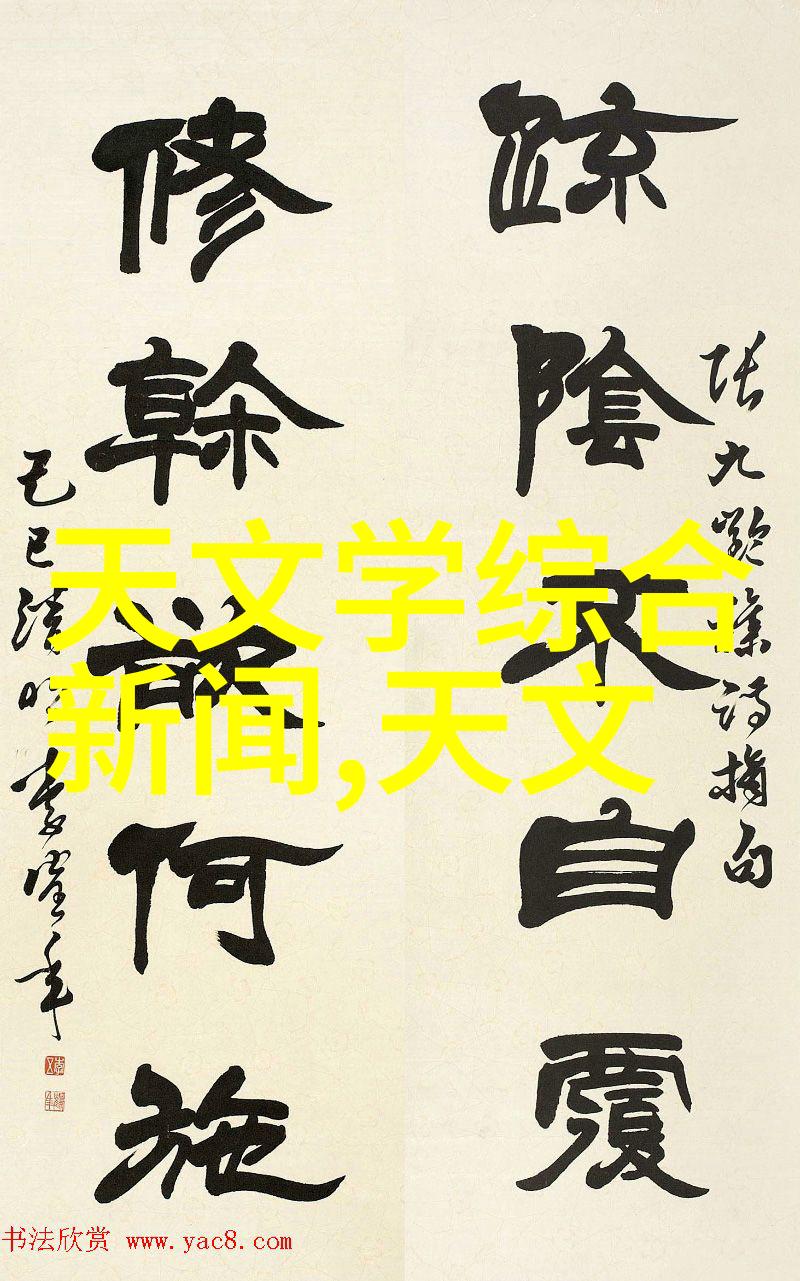 疏陰不自覆
修幹欲何施
張九齡雜詩摘句
己巳清明 李鐸年
天文学综合
新闻,天文
书法欣赏 www.yac8.com